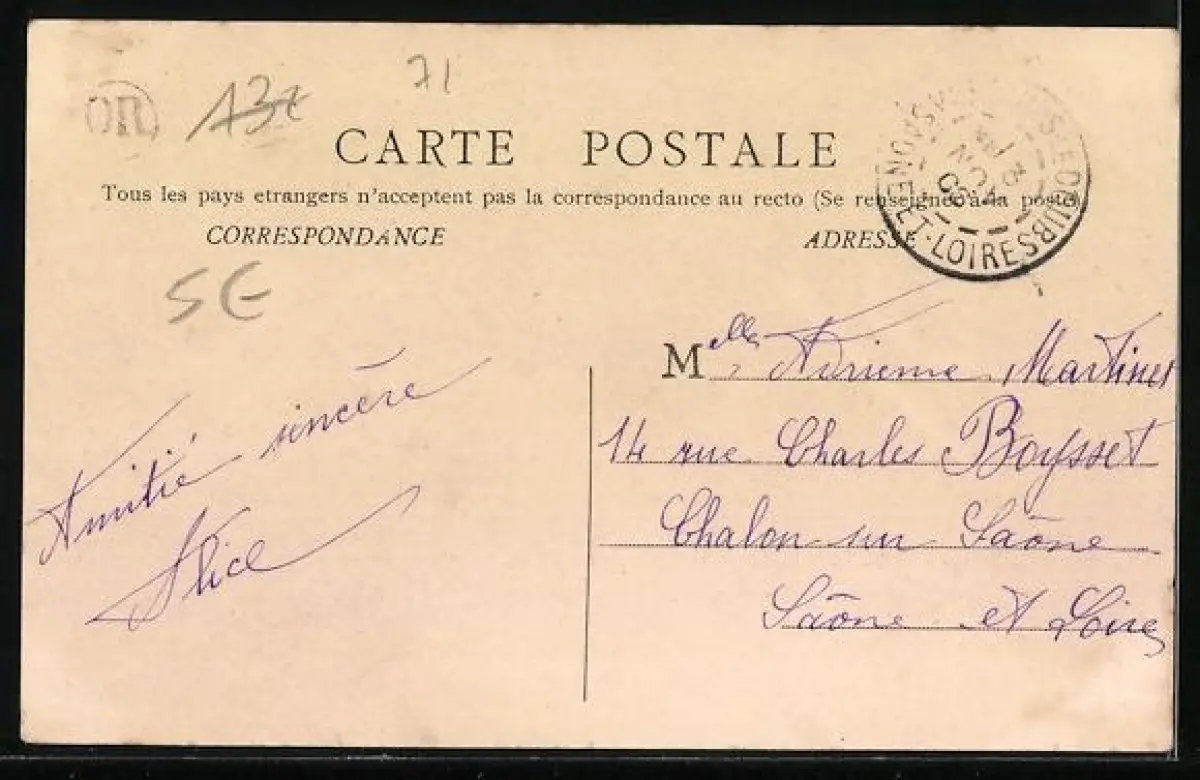 71
OR
CARTE POSTALE
Tous les pays etrangers n'acceptent pas la correspondance au recto (Se renseigner à la poste).
CORRESPONDANCE
ADRESSE
SAÔNE-ET-LOIRE
5€
Amitié sincère
Alice
Melle Adrienne Martinet
14 rue Charles Boysset
Chalon sur Saône
Saône et Loire